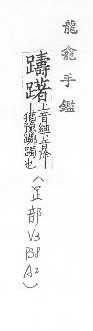 龍龕手鑑
躊躇
上音紬下音除
—猶豫躑躅也
(足部
V3
P38
A2)